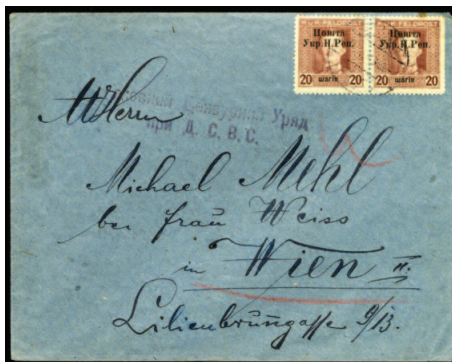 Пошта Пошта
Укр.Н.Реп. Укр.Н.Реп.
20 шагів 20 20 шагів 20
Цензурний Уряд
при Д. С. В. С.
Herrn
Michael Mehl
bei Frau Weiss
in Wien II.
Lilienbrunngasse 9/13.